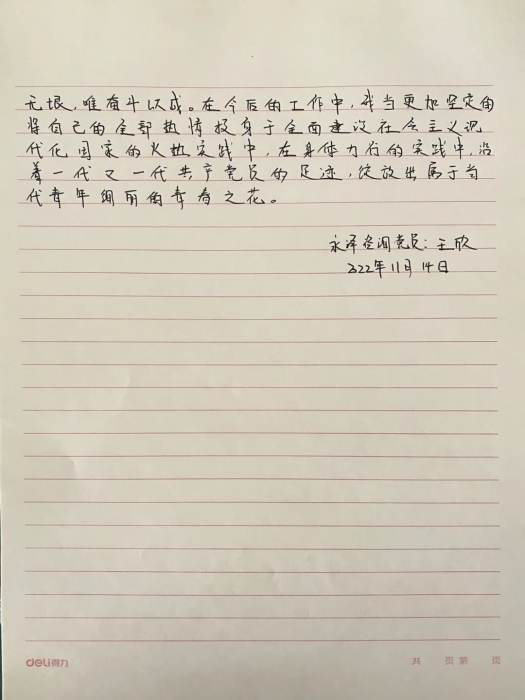 无垠,唯奋斗以成。在今后的工作中,我当更加坚定的
将自己的全部热情投身于全面建设社会主义现
代化国家的火热实践中,在身体力行的实践中,沿
着一代又一代共产党员的足迹,绽放出属于当
代青年绚丽的青春之花。
永泽空间党员:王欣
2022年11月14日
deli得力
共 页 第 页